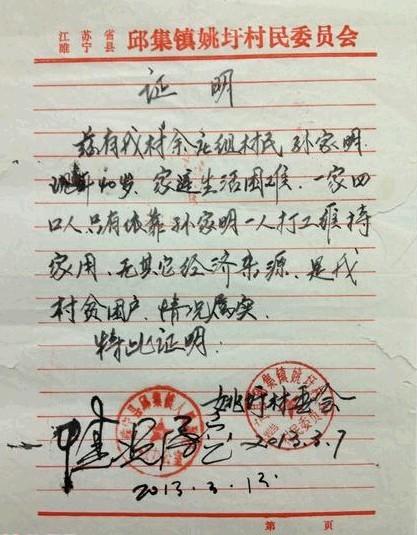 江苏省
睢宁县 邱集镇姚圩村民委员会
证明
兹有我村余庄组村民孙家明.
现年40岁、家庭生活困难、一家四
口人只有依靠孙家明一人打工维持
家用、无其它经济来源、是我
村贫困户、情况属实、
特此证明.
姚圩村委会
2013.3.7
2013.3.13.
第 页